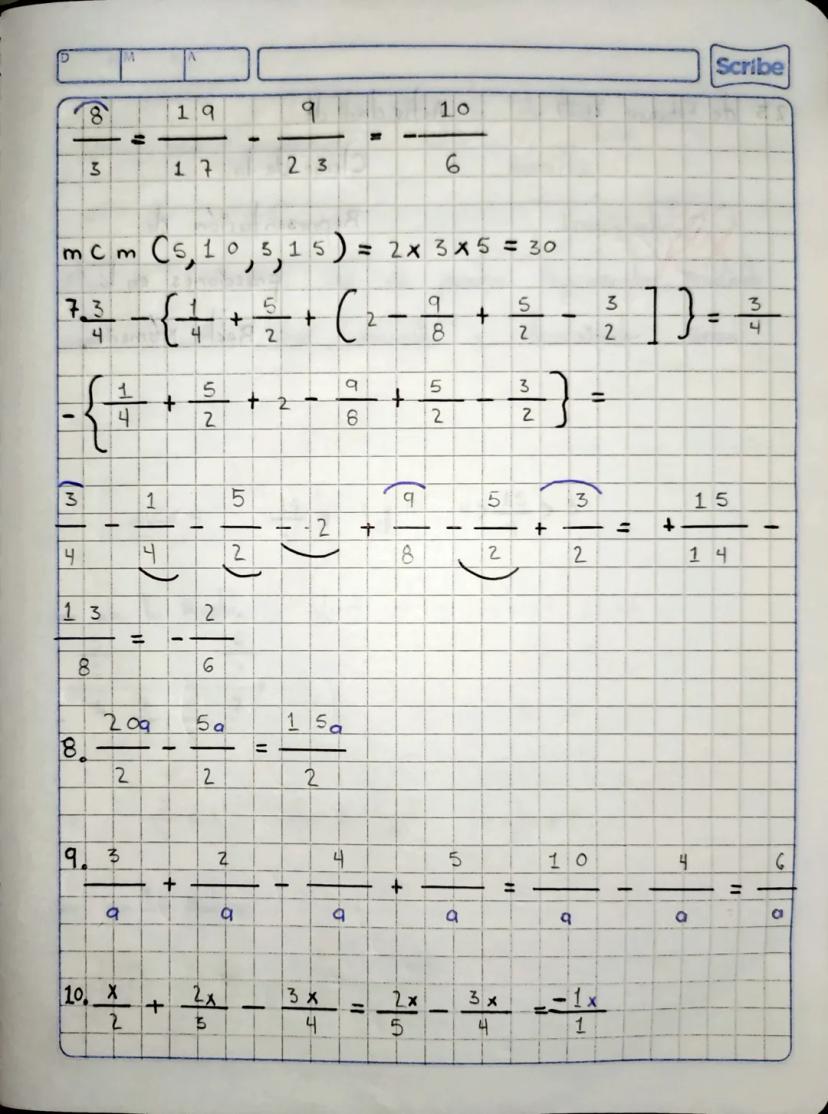 D M A Scribe
8/3 = 19/17 - 9/23 = -10/6
mcm (5,10,3,15) = 2x3x5 = 30
7. 3/4 - {1/4 + 5/2 + (2 - 9/8 + 5/2 - 3/2]} = 3/4
- {1/4 + 5/2 + 2 - 9/8 + 5/2 - 3/2} =
3/4 - 1/4 - 5/2 - 2 + 9/8 - 5/2 + 3/2 = + 15/14 -
13/8 = - 2/6
8. 20a/2 - 5a/2 = 15a/2
9. 3/a + 2/a - 4/a + 5/a = 10/a - 4/a = 6/a
10. x/2 + 2x/3 - 3x/4 = 2x/5 - 3x/4 = -1x/1